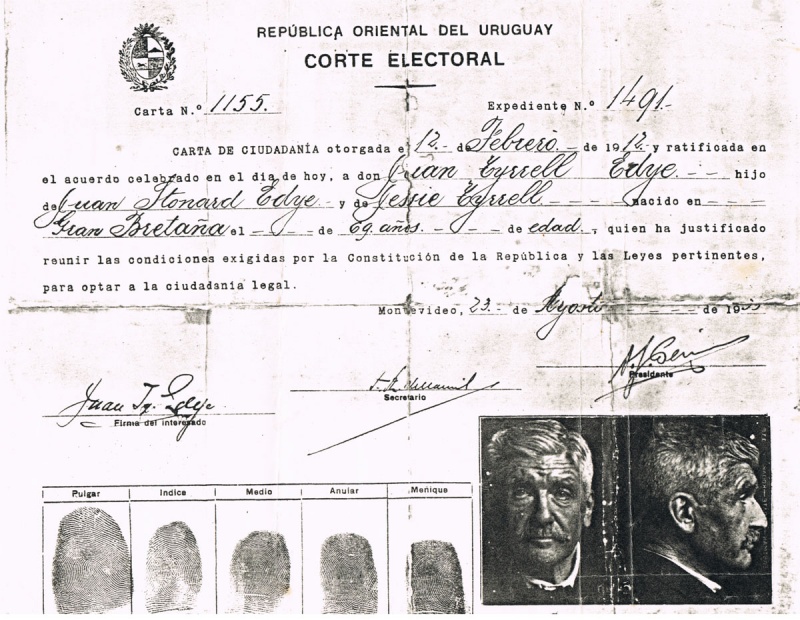 REPÚBLICA ORIENTAL DEL URUGUAY
CORTE ELECTORAL
Carta N.º 1155. Expediente N.º 1491.-
CARTA DE CIUDADANÍA otorgada el 12.- de Febrero.- de 1912.- y ratificada en
el acuerdo celebrado en el día de hoy, a don Juan Tyrrell Edye.- - hijo
de Juan Stonard Edye - y de Jessie Tyrrell - - - - nacido en - - -
Gran Bretaña el - - - de 69 años. - - - de edad.-, quien ha justificado
reunir las condiciones exigidas por la Constitución de la República y las Leyes pertinentes,
para optar a la ciudadanía legal.
Montevideo, 23.- de Agosto - - - - de 19
Presidente
Secretario
Juan Ty. Edye
Firma del interesado
Pulgar Indice Medio Anular Meñique